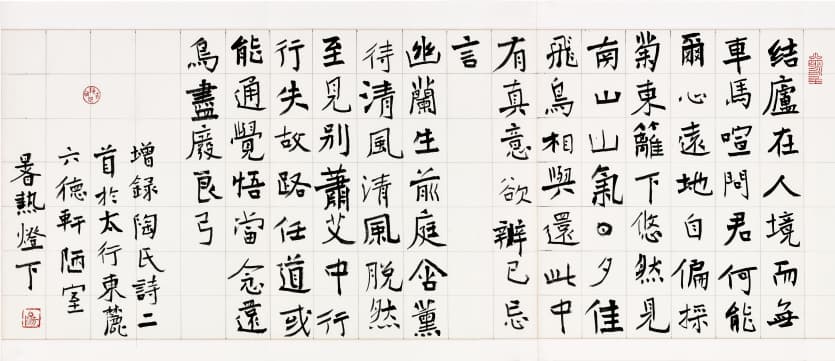 結廬在人境而無
車馬喧問君何能
爾心遠地自偏採
菊東籬下悠然見
南山山氣日夕佳
飛鳥相與還此中
有真意欲辨已忘
言
幽蘭生前庭含薰
待清風清風脫然
至見別蕭艾中行
行失故路任道或
能通覺悟當念還
鳥盡廢良弓
增録陶氏詩二
首於太行東麓
六德軒陋室
暑熱燈下